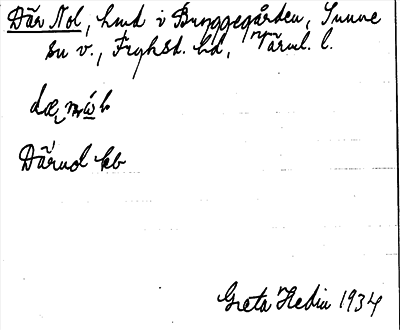 Där Nol, hmd i Bryggegården, Sunne
sn v., Fryksd. hd, Värml. l.
Därnol kb
Greta Hedin 1934